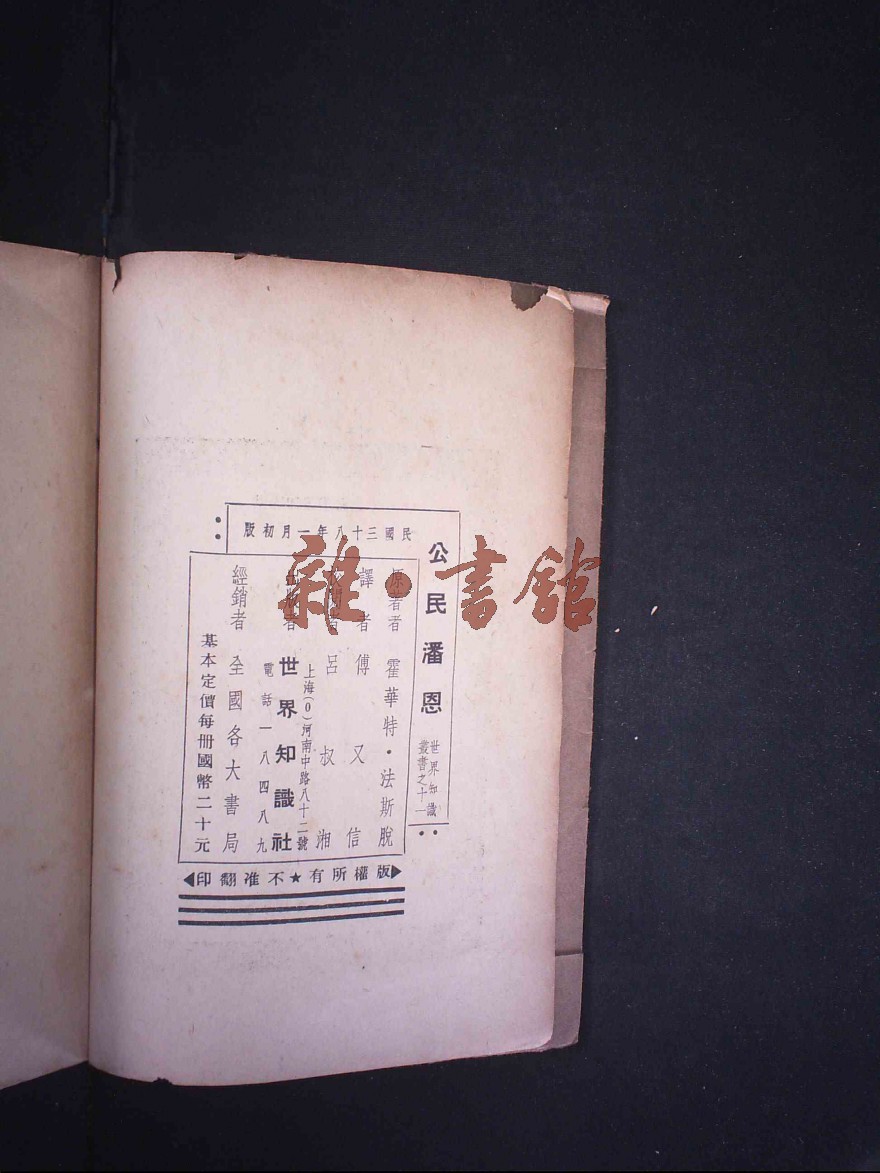 公民潘恩
世界知識
叢書之十一
民國三十八年一月初版
原著者 霍華特·法斯脫
譯者 傅又信
呂叔湘
上海(0)河南中路八十二號
世界知識社
電話一八四八九
經銷者 全國各大書局
基本定價每册國幣二十元
版權所有★不准翻印
雜·書館